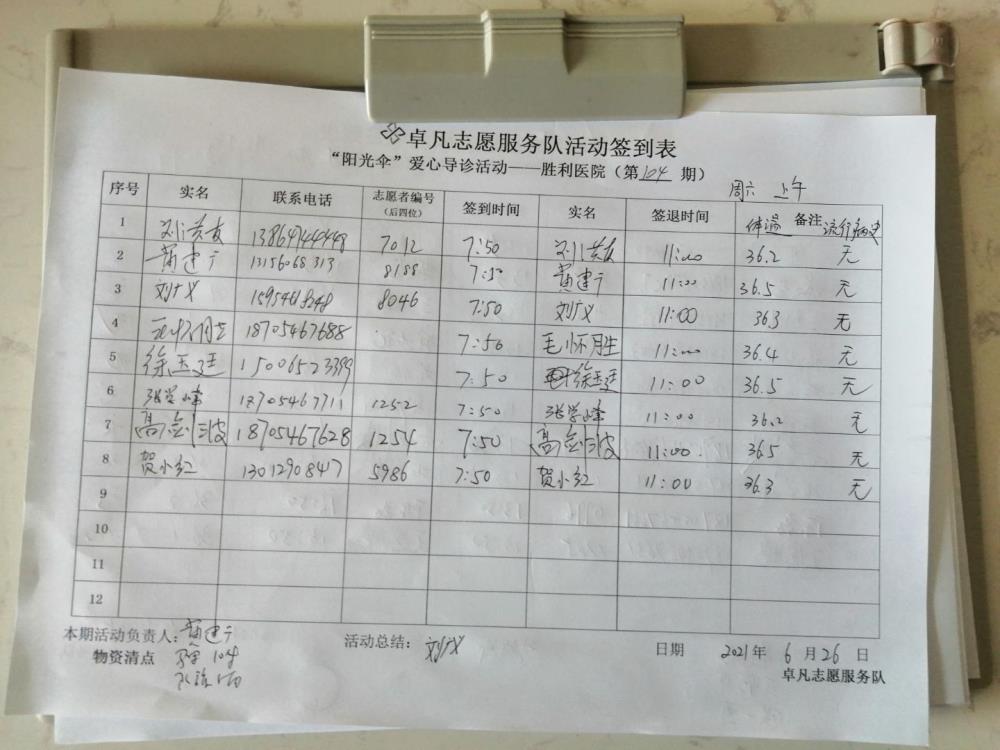 卓凡志愿服务队活动签到表
“阳光伞”爱心导诊活动——胜利医院（第104期）
周六 上午
序号 实名 联系电话 志愿者编号（后四位） 签到时间 实名 签退时间 体温 备注 流行病史
1 7012 7:50 11:00 36.2 无
2 黄建宁 13156068313 8188 7:50 黄建宁 11:00 36.5 无
3 刘广义 8046 7:50 刘广义 11:00 36.3 无
4 毛怀胜 18705467688 7:50 毛怀胜 11:00 36.4 无
5 徐玉廷 15006523399 7:50 徐玉廷 11:00 36.5 无
6 张学峰 18705467711 1252 7:50 张学峰 11:00 36.2 无
7 18705467628 1254 7:50 11:00 36.5 无
8 贺小红 1301290847 5986 7:50 贺小红 11:00 36.3 无
9
10
11
12
本期活动负责人：黄建宁 活动总结：刘广义 日期 2021年6月26日
物资清点 卓凡志愿服务队